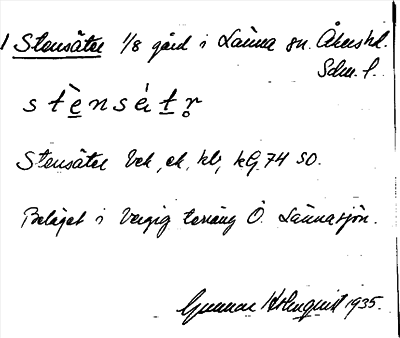 1 Stensäter 1/8 gård i Länna sn. Åkers hd.
Södm. l.
stènsätr
Stensäter Eck, ek, kb, kG 74 SO.
Beläget i bergig terräng Ö. Lännasjön.
Gunnar Holmquist 1935.